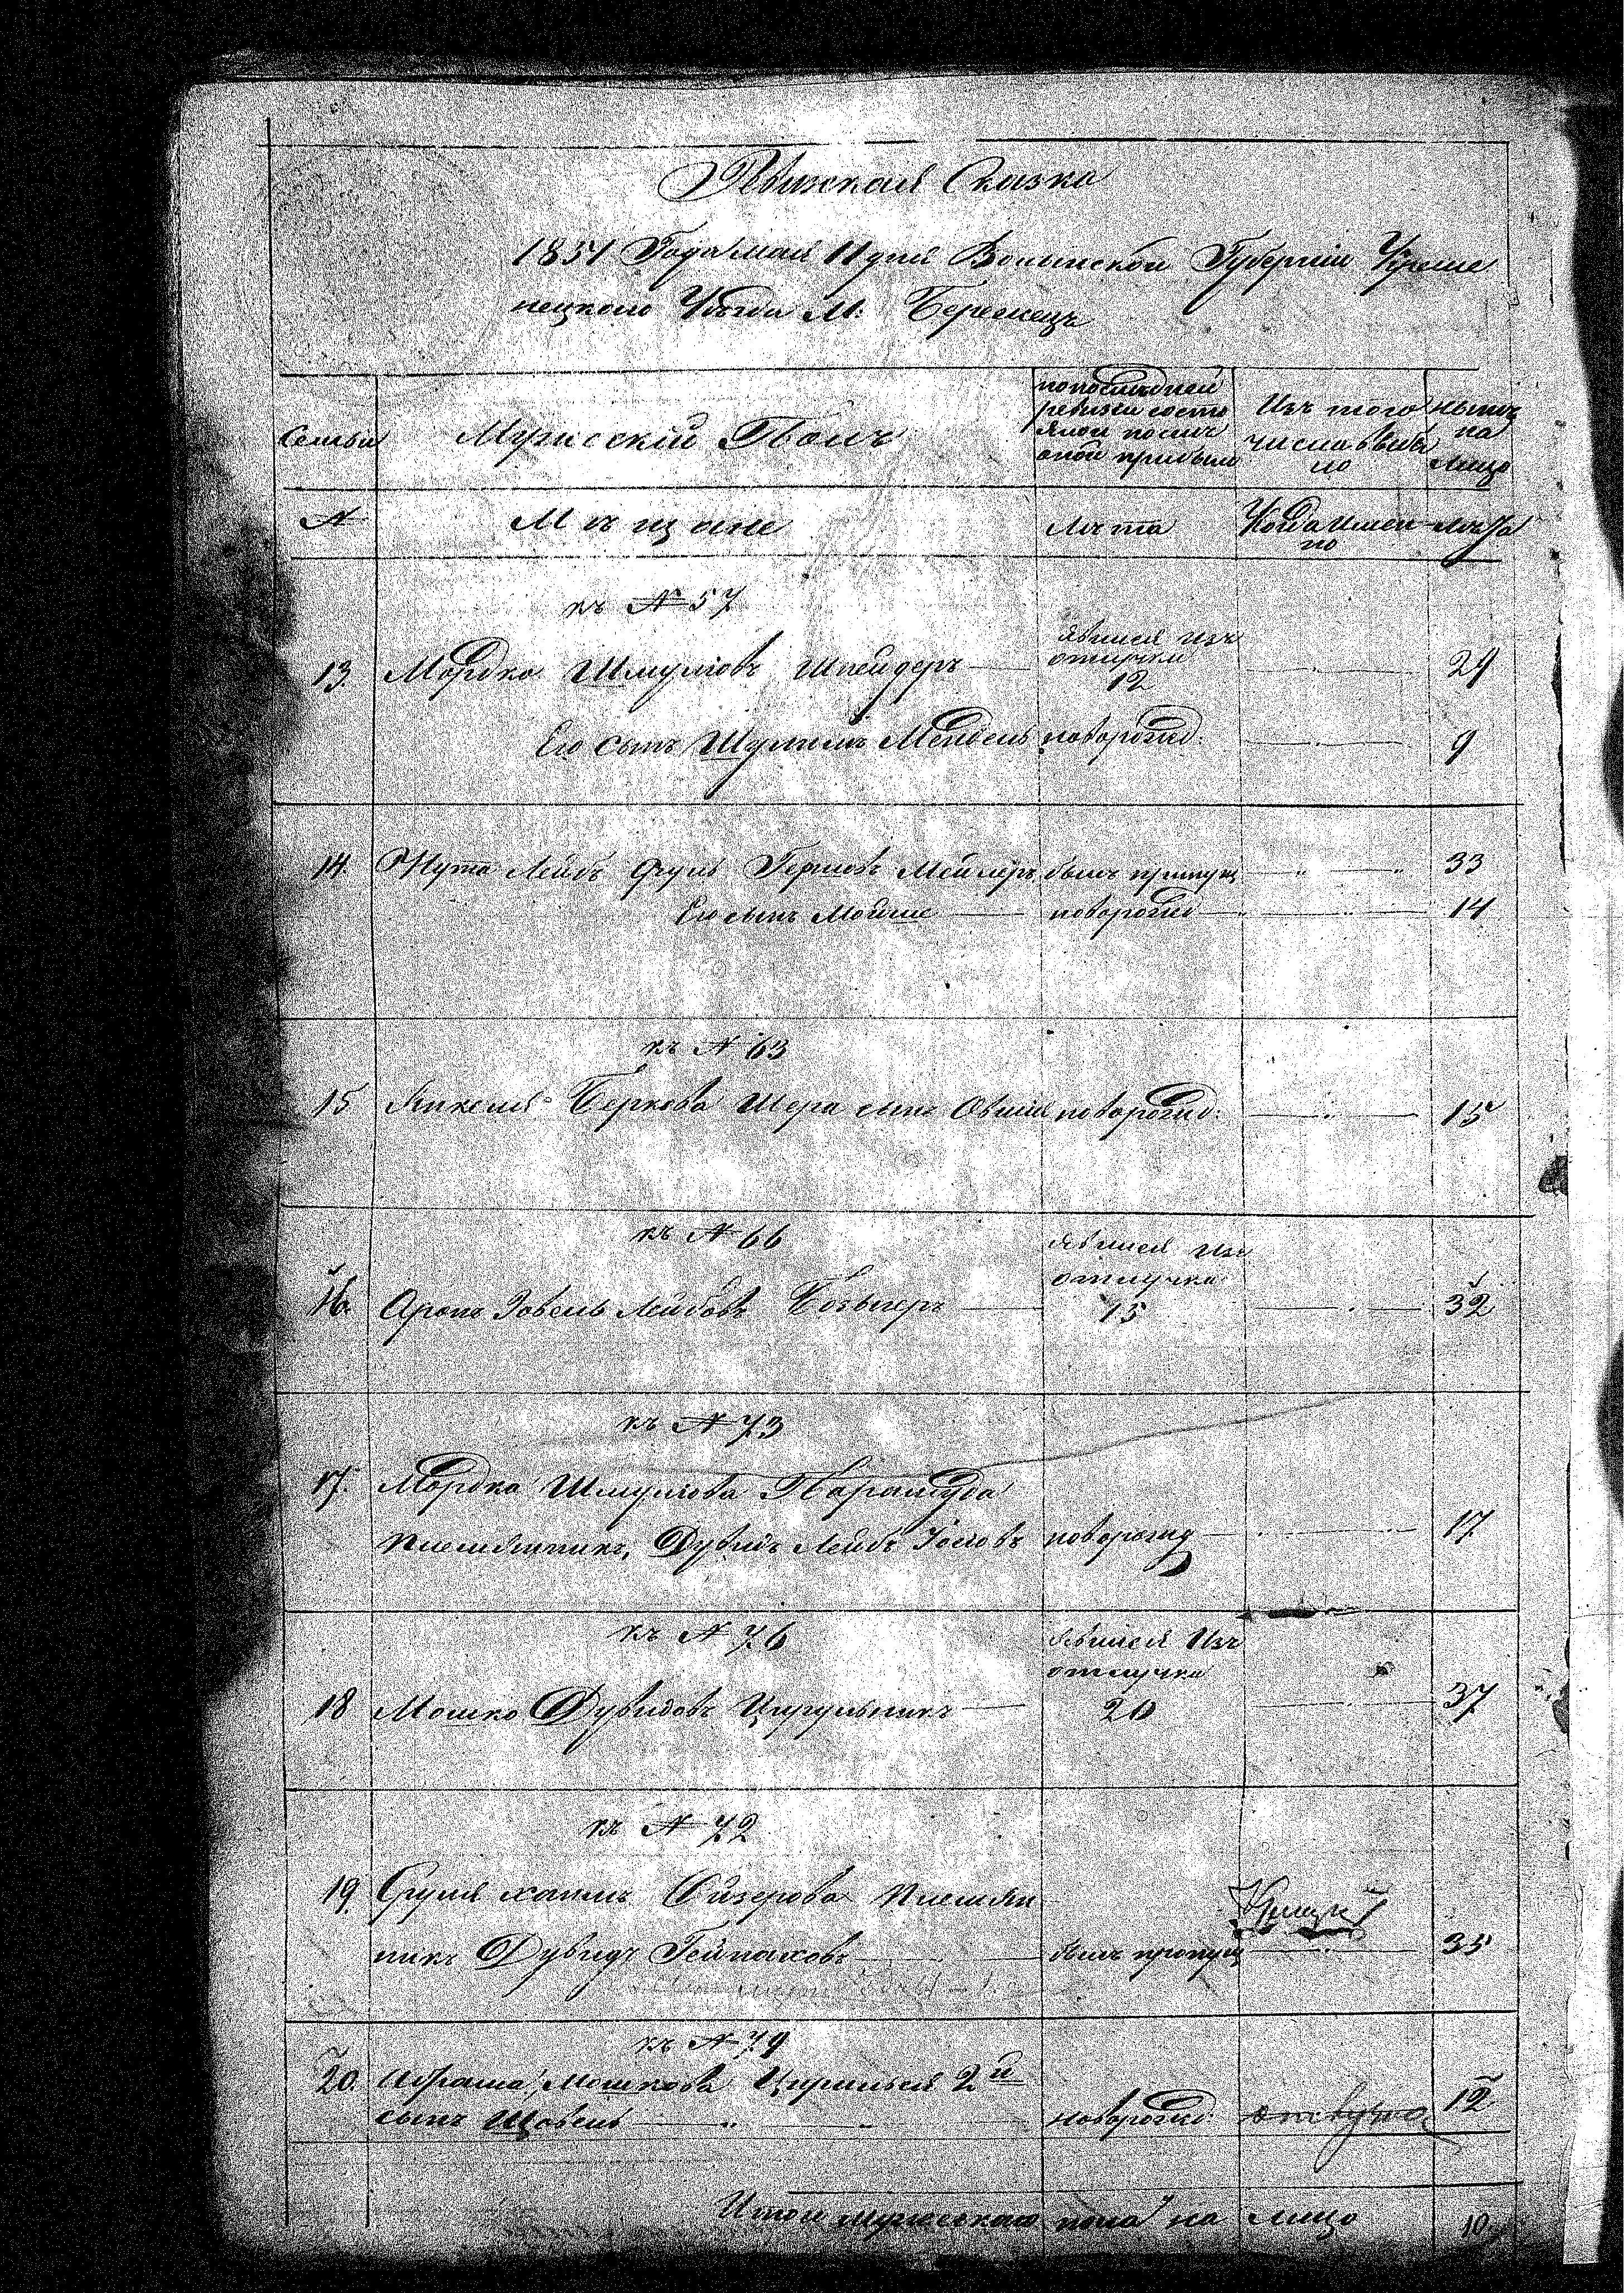 Ревизская Сказка
1851 Года мая 11 дня Волынской Губернии Креме
нецкого Уѣзда М: Бережецъ
Семьи
Мужескій Полъ
по последней
ревизіи состо
яло и послѣ
оной прибыло
Изъ того
числа выбы
ло
нынѣ
на
лицо
№
Мѣщане
Лѣта
Когда имен
но
Лѣта
къ № 57
13. Мордко Шмулiовъ Шнейдеръ явился изъ отлучки 12 — 29
Его сынъ Шулимъ Мендель новорожд. — 9
14. Нута Лейбъ Сруль Гершовъ Мейлеръ былъ пропущ — 33
Его сынъ Мойше — новорожд — 14
къ № 63
15 Янкеля Беркова Шера сынъ Овшія новорожд: — 15
къ № 66
16. Аронъ Зовель Лейбовъ явился изъ отлучки 15 — 32
къ № 73
17. Мордка Шмулiова
племянникъ, Дувидъ Лейбъ Іосiовъ новорожд — 17
къ № 76
18 Мошко Дувидовъ Цирульникъ — явился изъ отлучки 20 — 37
къ № 72
19. Сруля Хаимъ Айзерова племян
никъ Дувидъ былъ пропущ — 35
къ № 79
20. Абрама Мошкова 2й
сынъ Шовель — новорожд: 12
Итого мужескаго пола на лицо 10